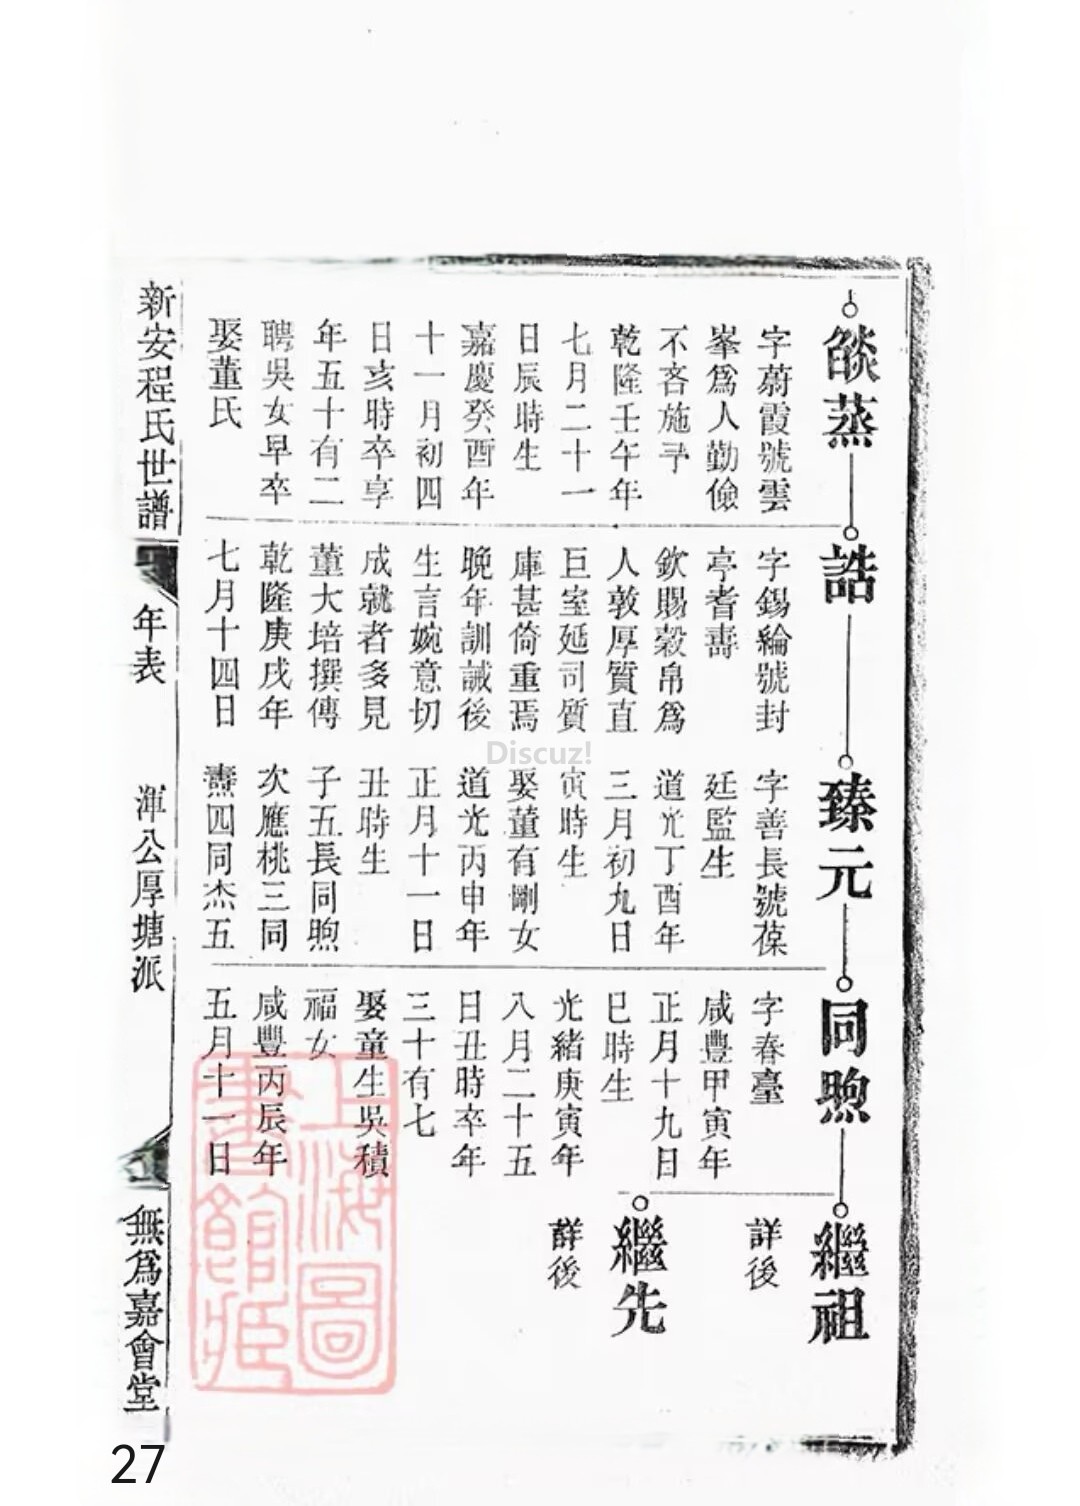 燄蒸
字蔚霞號雲
峯爲人勤儉
不吝施予
乾隆壬午年
七月二十一
日辰時生
嘉慶癸酉年
十一月初四
日亥時卒享
年五十有二
聘吳女早卒
娶董氏
誥
字錫綸號封
亭耆壽
欽賜榖帛爲
人敦厚質直
巨室延司質
庫甚倚重焉
晚年訓誡後
生言婉意切
成就者多見
董大培撰傳
乾隆庚戌年
七月十四日
臻元
字善長號葆
廷監生
道光丁酉年
三月初九日
寅時生
娶董有剛女
道光丙申年
正月十一日
丑時生
子五長同煦
次應桃三同
燾四同杰五
同煦
字春臺
咸豐甲寅年
正月十九日
巳時生
光緒庚寅年
八月二十五
日丑時卒年
三十有七
娶童生吳積
福女
咸豐丙辰年
五月十一日
繼祖
詳後
繼先
詳後
新安程氏世譜
年表
渾公厚塘派
無爲嘉會堂
上海圖
書館藏
Discuz!
27